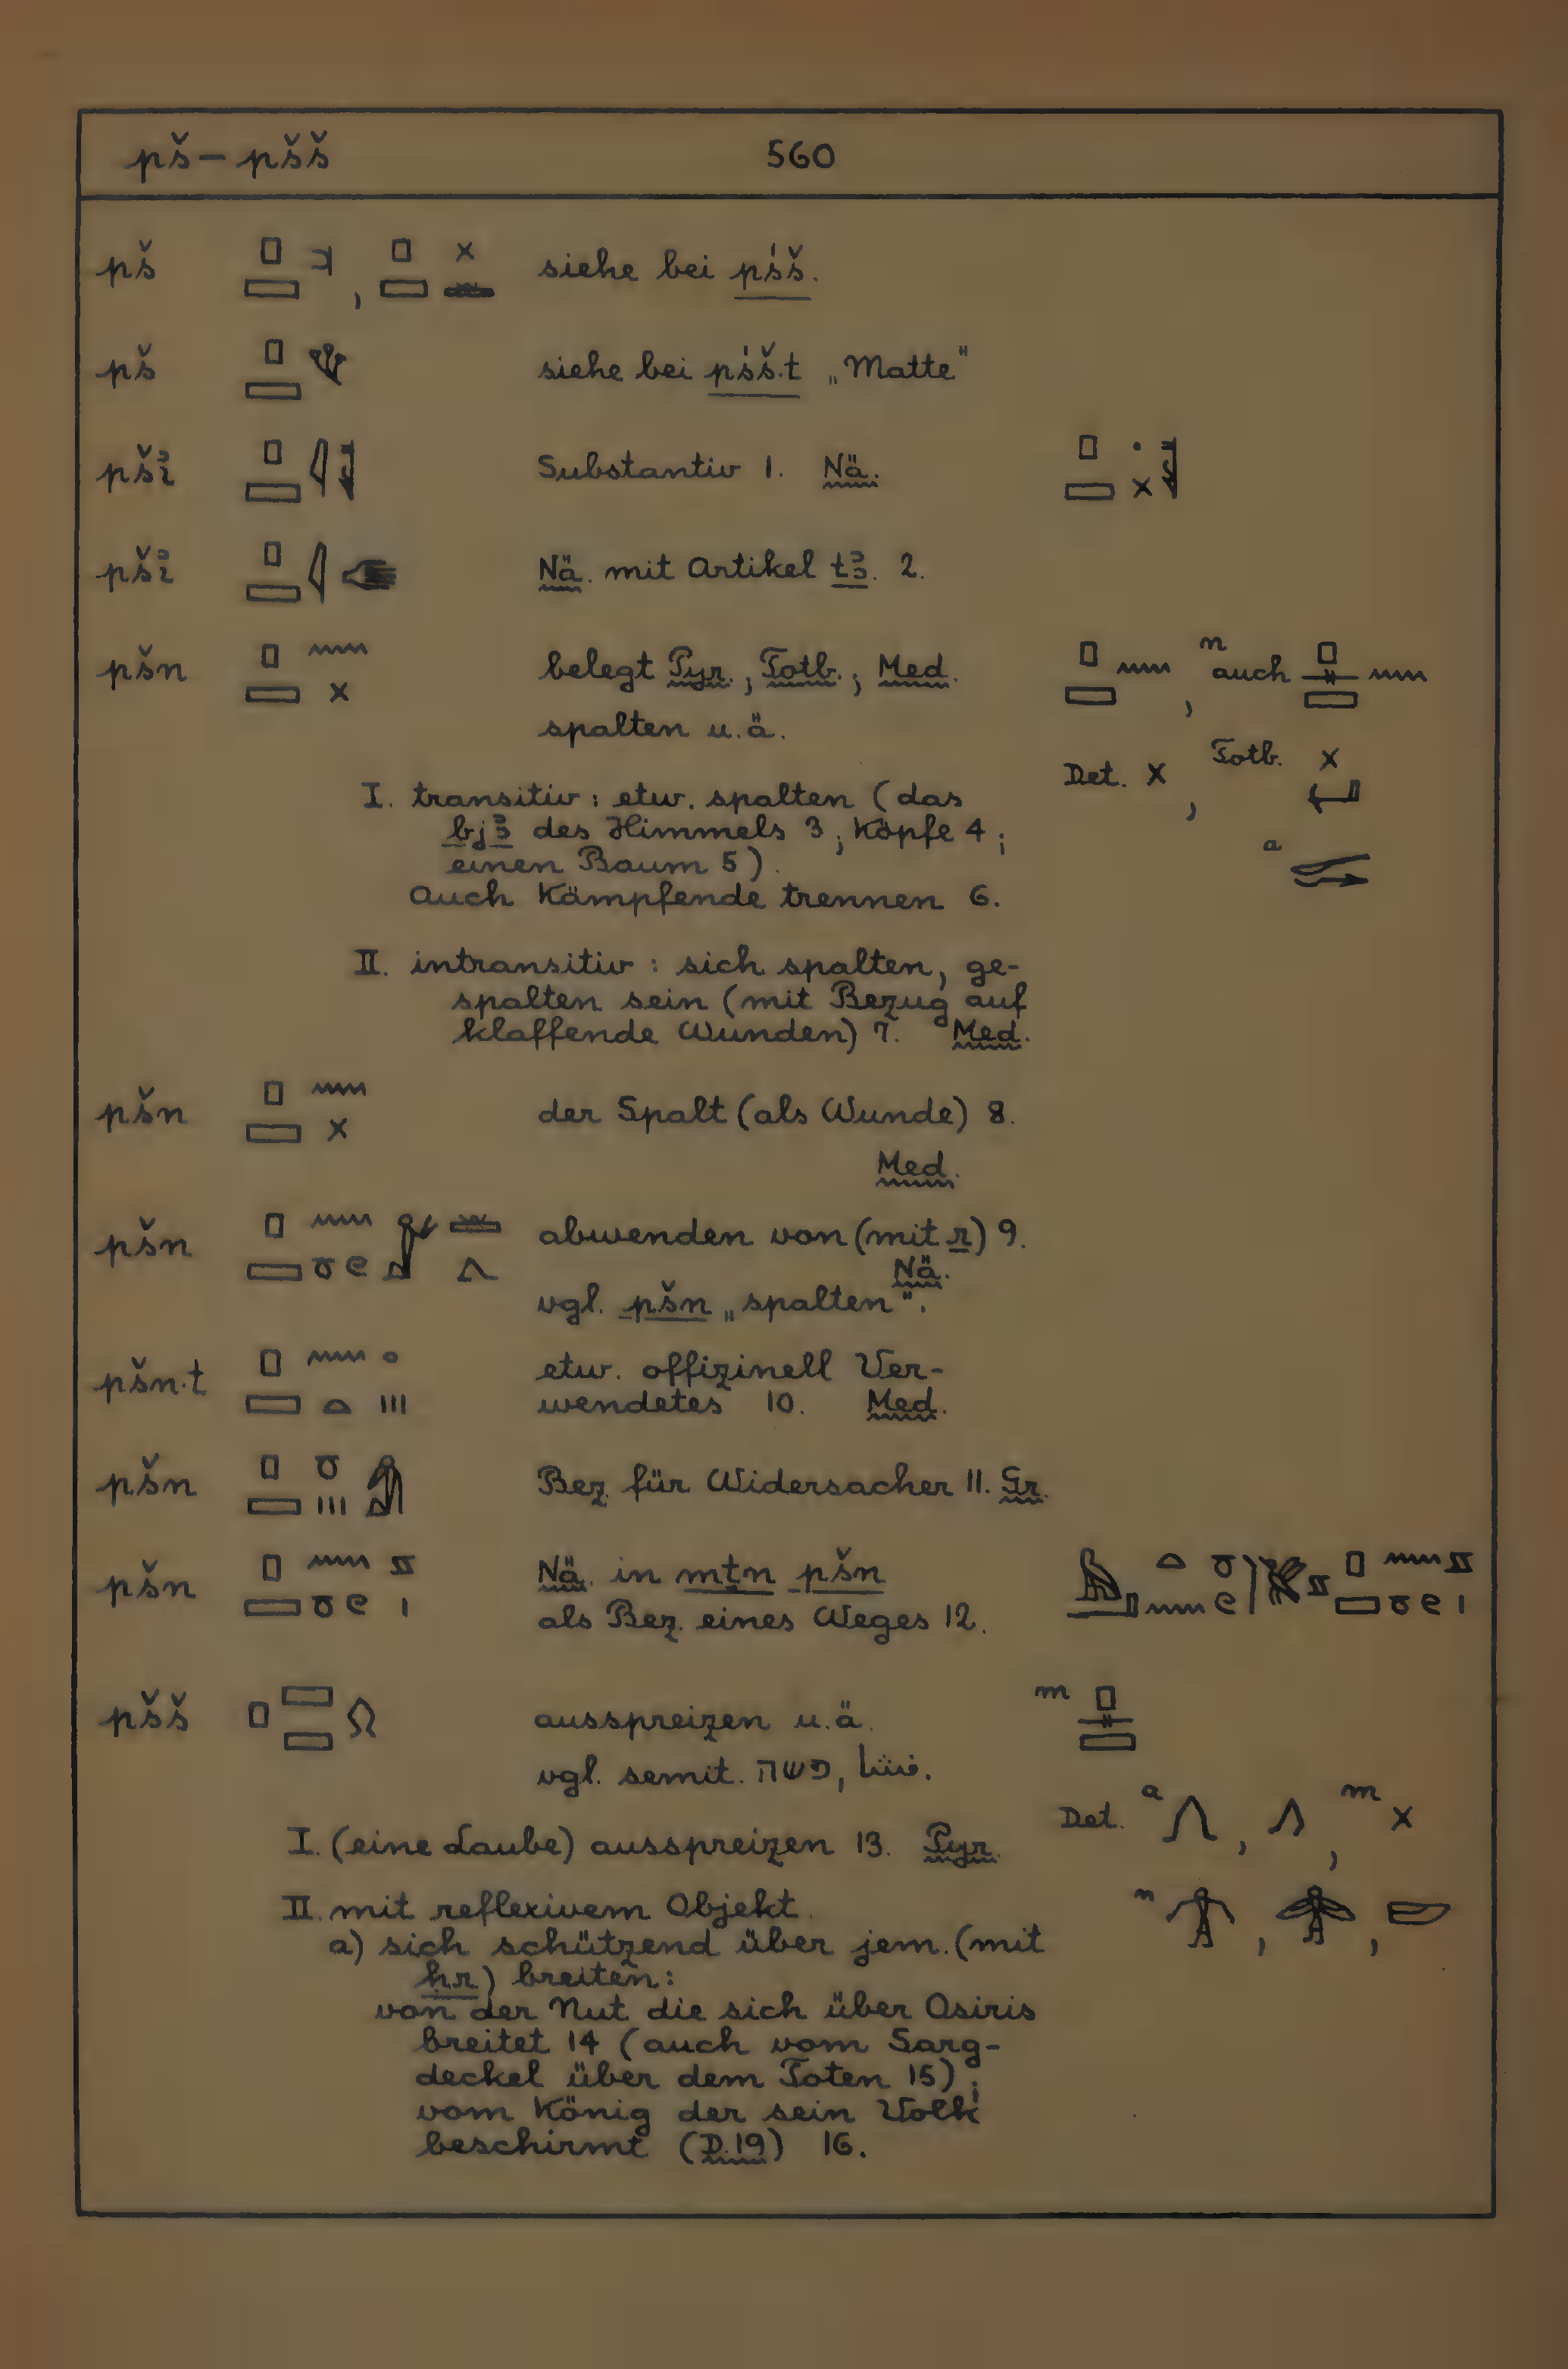 pš – pšš 560
pš siehe bei pśš.
pš siehe bei pśš.t „Matte"
pšꞽ Substantiv 1. Nä.
pšꞽ Nä. mit Artikel tꜣ. 2.
pšn belegt Pyr., Totb., Med. n auch
spalten u.ä.
Det. Totb.
I. transitiv: etw. spalten (das
bjꜣ des Himmels 3; Köpfe 4;
a
einen Baum 5).
Auch Kämpfende trennen 6.
II. intransitiv: sich spalten, ge-
spalten sein (mit Bezug auf
klaffende Wunden) 7. Med.
pšn der Spalt (als Wunde) 8.
Med.
pšn abwenden von (mit r) 9.
Nä.
vgl. pšn „spalten".
pšn.t etw. offizinell Ver-
wendetes 10. Med.
pšn Bez. für Widersacher 11. Gr.
pšn Nä. in mtn pšn
als Bez. eines Weges 12.
pšš ausspreizen u.ä. m
vgl. semit. פשה, فشا.
Det. a m
I. (eine Laube) ausspreizen 13. Pyr.
II. mit reflexivem Objekt. n
a) sich schützend über jem. (mit
ḥr) breiten:
von der Nut die sich über Osiris
breitet 14 (auch vom Sarg-
deckel über dem Toten 15);
vom König der sein Volk
beschirmt (D.19) 16.